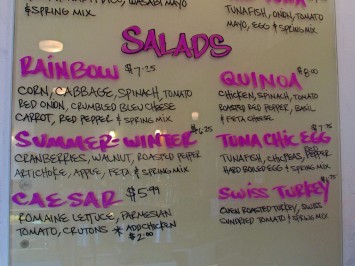 WASABI MAYO
& SPRING MIX
TUNAFISH, ONION, TOMATO
MAYO, EGG & SPRING MIX
SALADS
RAINBOW $7.25
CORN, CABBAGE, SPINACH, TOMATO
RED ONION, CRUMBLED BLEU CHEESE
CARROT, RED PEPPER & SPRING MIX
SUMMER-WINTER $6.25
CRANBERRIES, WALNUT, ROASTED PEPPER
ARTICHOKE, APPLE, FETA & SPRING MIX
CAESAR $5.99
ROMAINE LETTUCE, PARMESAN
TOMATO, CRUTONS * ADD CHICKEN
$2.00
QUINOA $8.00
CHICKEN, SPINACH, TOMATO
ROASTED RED PEPPER, BASIL
& FETA CHEESE
TUNA CHIC EGG $7.75
TUNAFISH, CHICPEAS, RED PEPPER
HARD BOILED EGG & SPRING MIX
SWISS TURKEY
OVEN ROASTED TURKEY, SWISS
SUNDRIED TOMATO & SPRING MIX